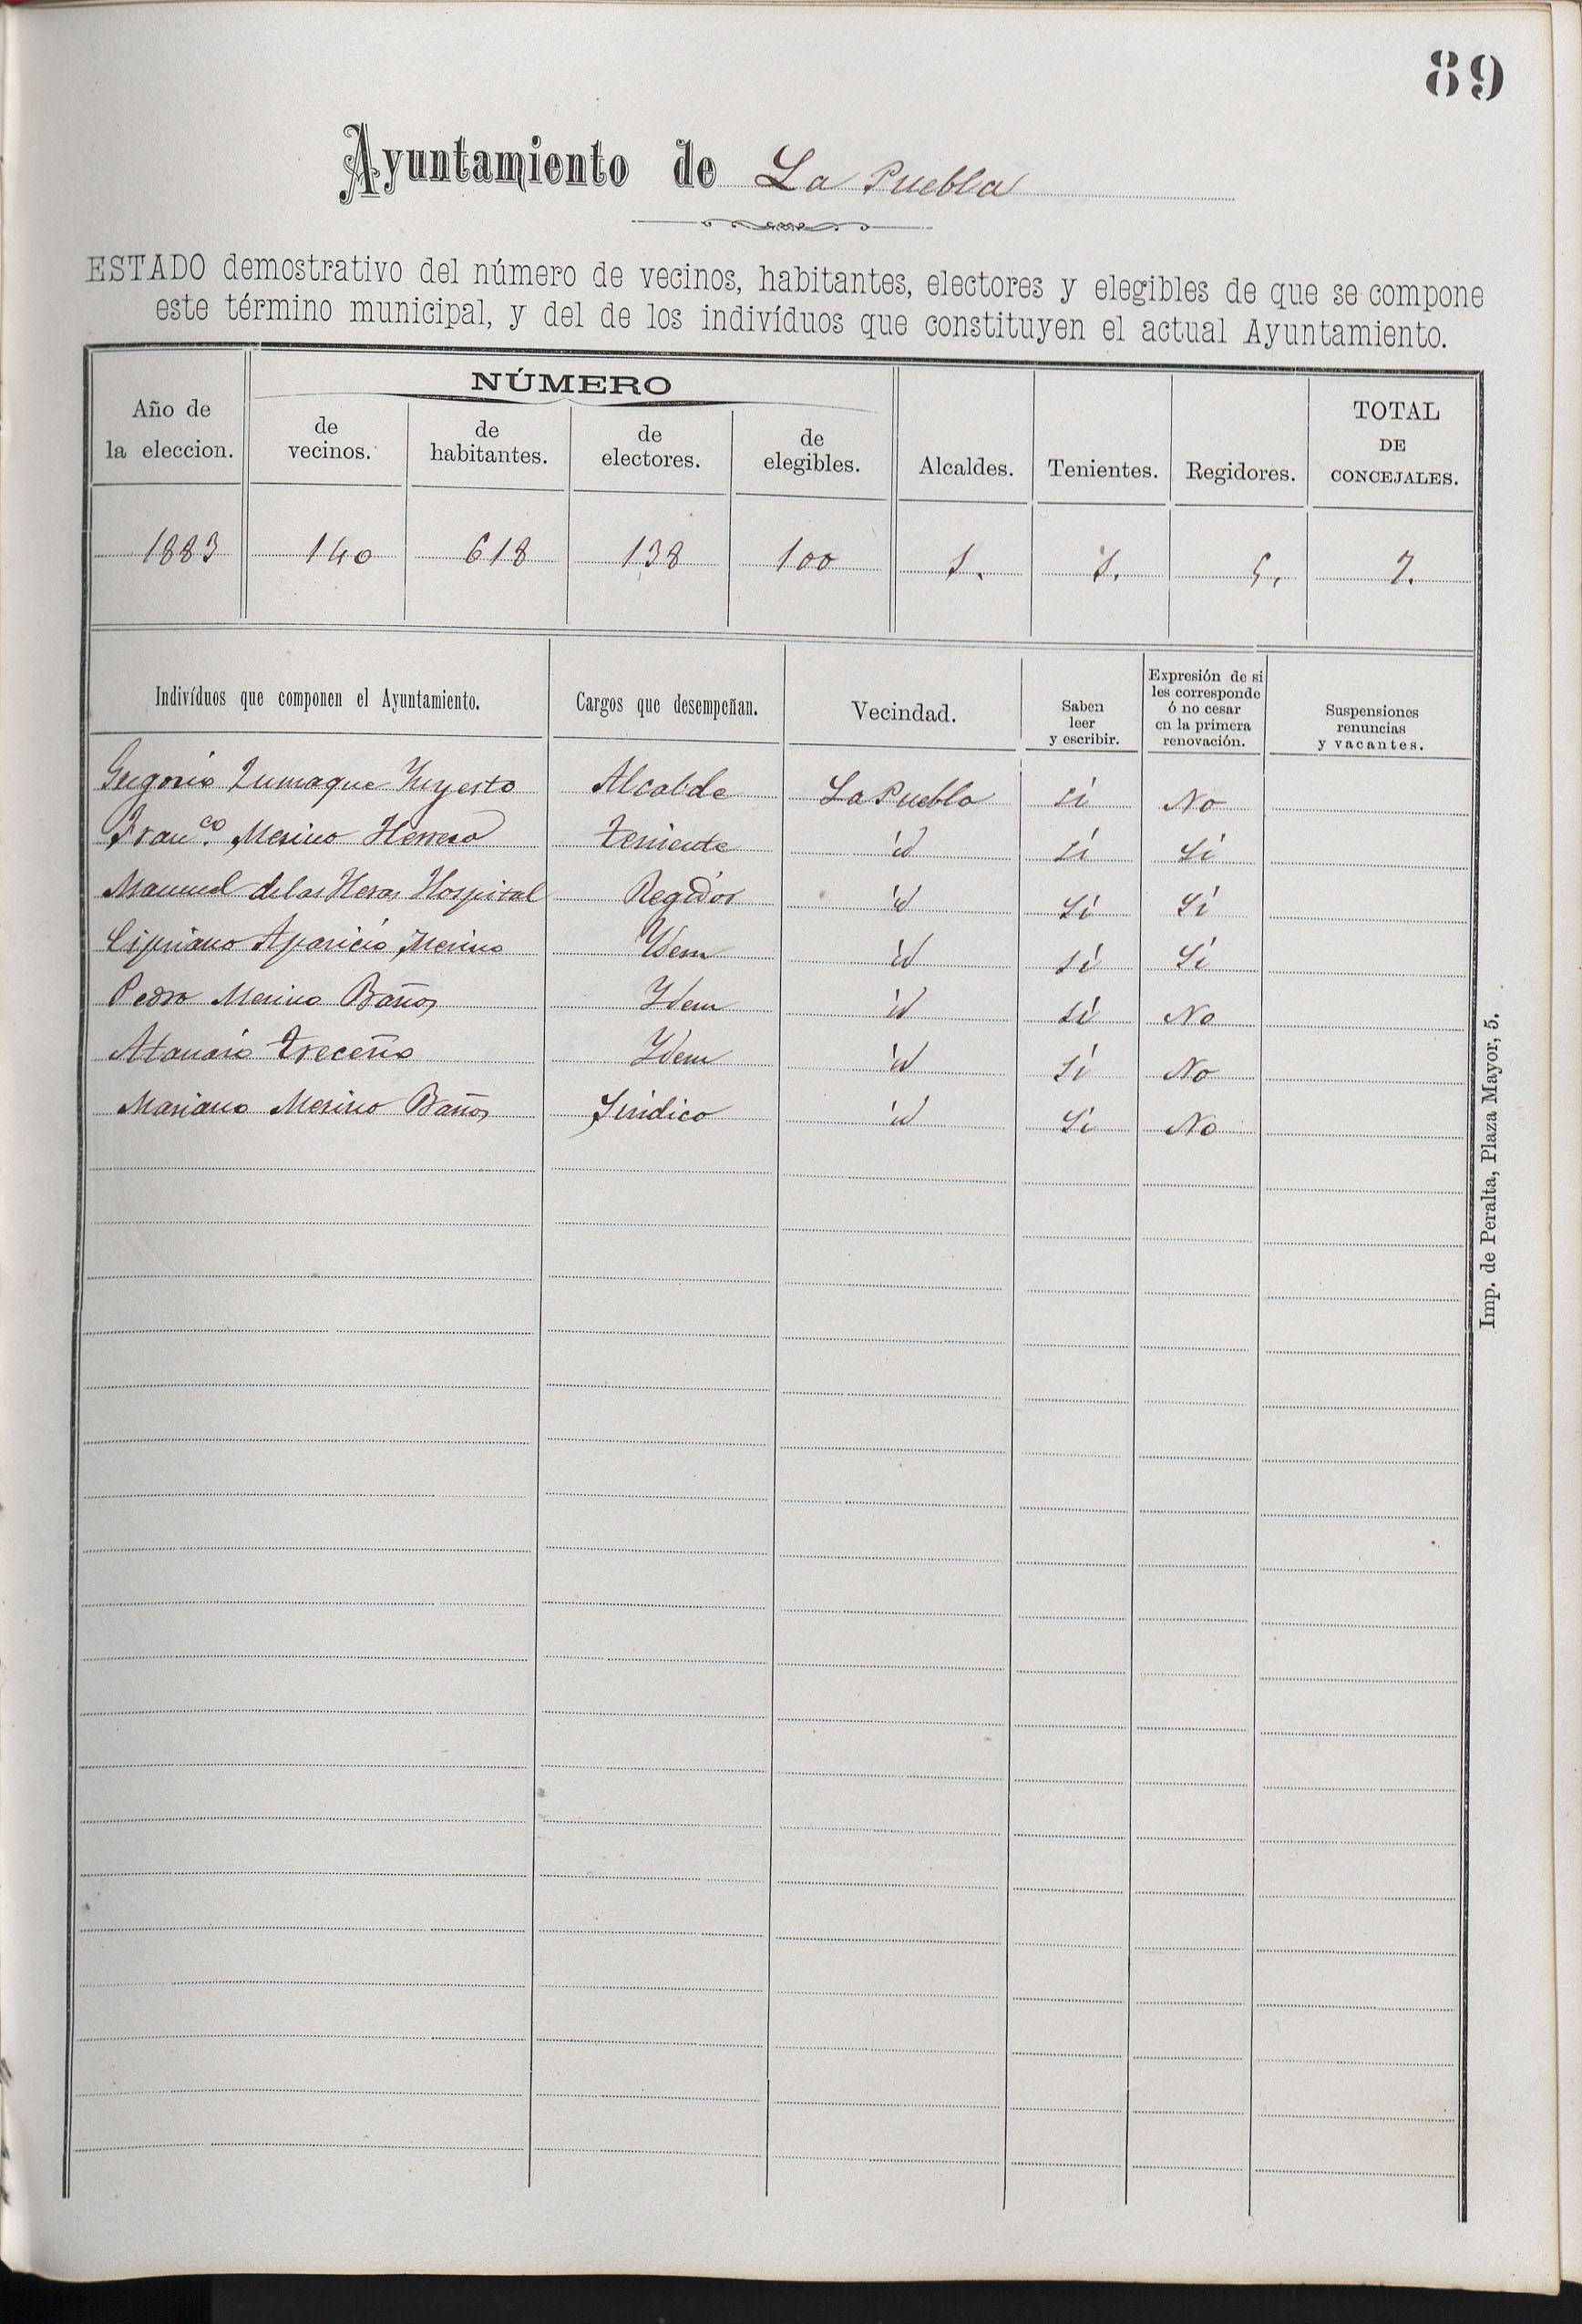 89
Ayuntamiento de La Puebla
ESTADO demostrativo del número de vecinos, habitantes, electores y elegibles de que se compone
este término municipal, y del de los indivíduos que constituyen el actual Ayuntamiento.
Año de la eleccion. NÚMERO de vecinos. de habitantes. de electores. de elegibles. Alcaldes. Tenientes. Regidores. TOTAL DE CONCEJALES.
1883 140 618 138 100 1. 1. 5. 7.
Indivíduos que componen el Ayuntamiento. Cargos que desempeñan. Vecindad. Saben leer y escribir. Expresión de si les corresponde ó no cesar en la primera renovación. Suspensiones renuncias y vacantes.
Gregorio Lumaque Alcalde La Puebla Si No
Franco. Merino Herrero teniente id Si Si
Manuel de las Heras Hospital Regidor id Si Si
Cipriano Aparicio Merino Idem id Si Si
Pedro Merino Baños Idem id Si No
Atanasio treceño Idem id Si No
Mariano Merino Baños Sindico id Si No
Imp. de Peralta, Plaza Mayor, 5.